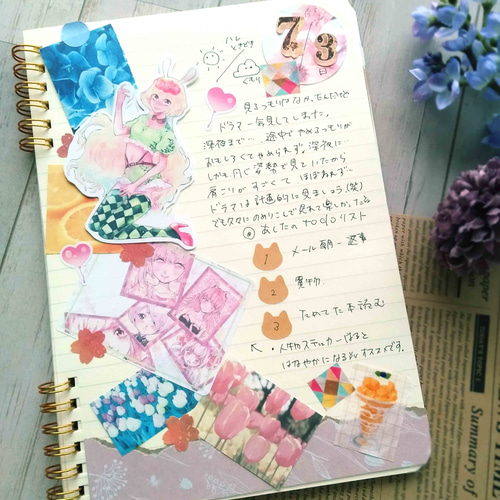 7/3
日
ハレ
ときどき
くもり
見るつもりはなかったんだけど
ドラマ一気見してしまった。
深夜まで… 途中でやめるつもりが
おもしろくてやめられず。深夜に
しかも同じ姿勢で見ていたから
肩こりがすごくて ほぼねれず…
ドラマは計画的に見ましょう(笑)
でも久々にのめりこんで見れて楽しかったな
あしたの TODO リスト
1 メール 朝一 返事
2 買い物
3 ためてた本読む
・人物ステッカーはると
はなやかになるよ オススメです。
Summary of